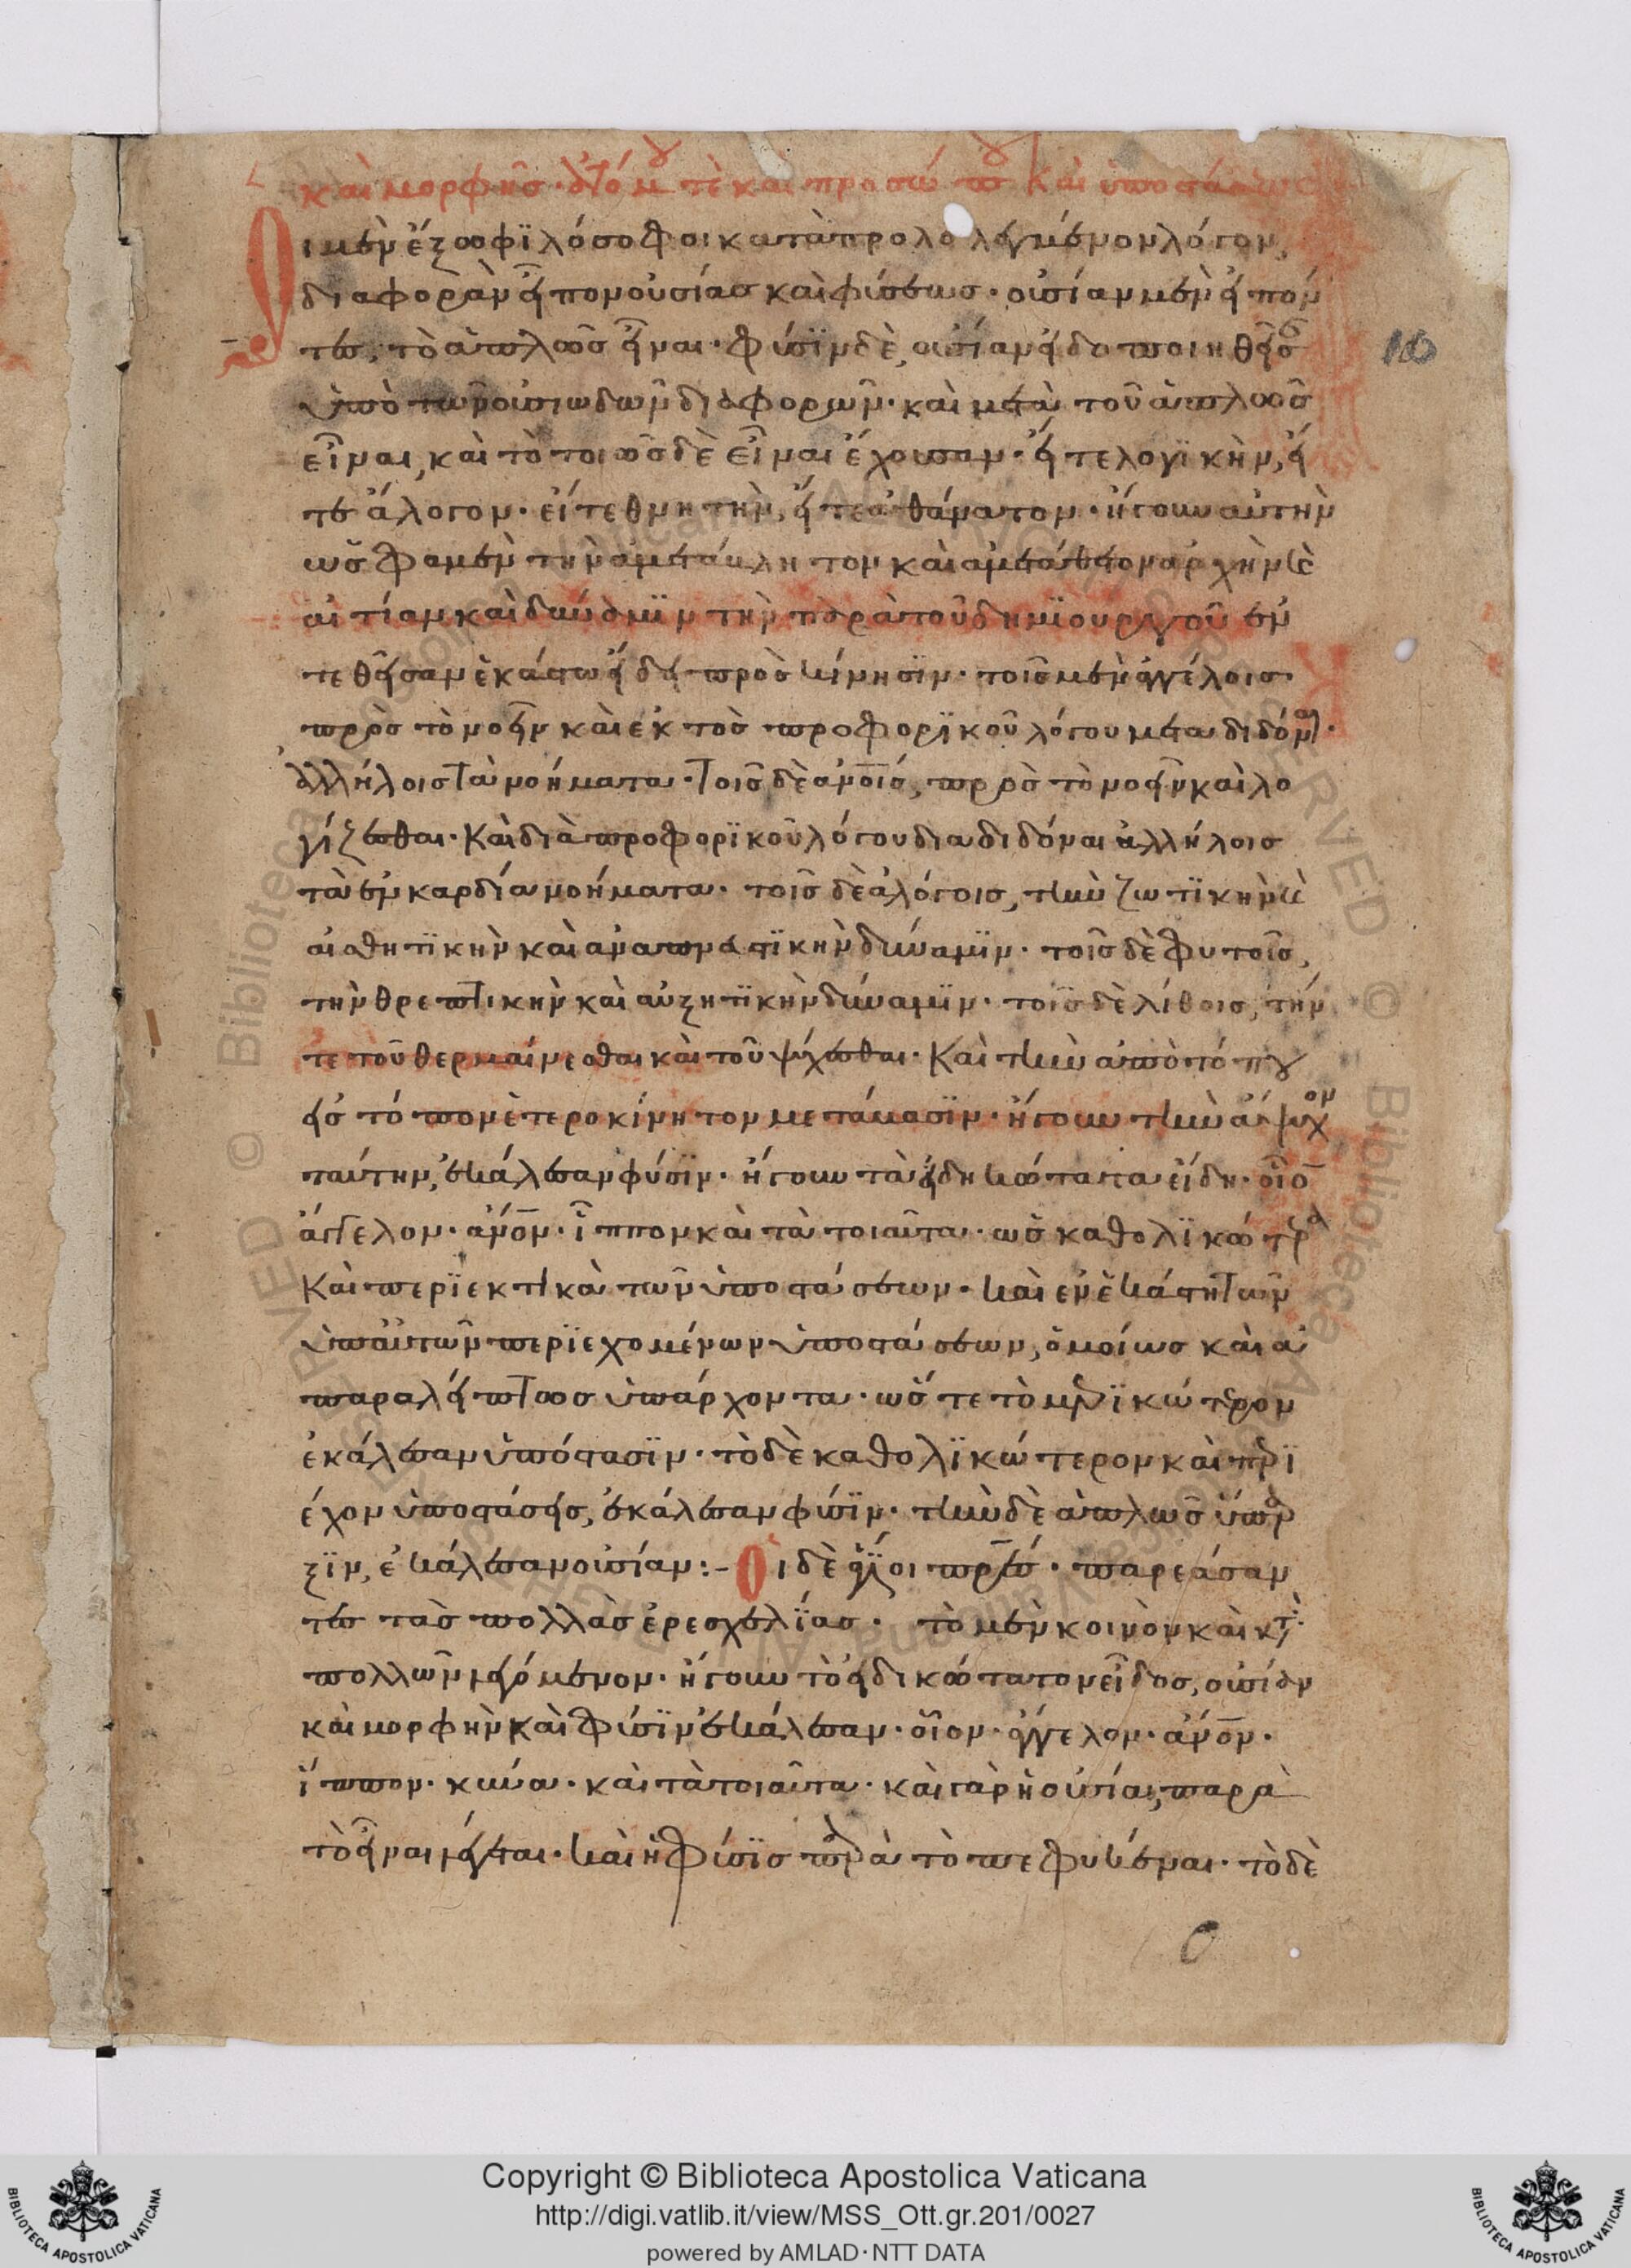 καὶ μορφῆς· ἀτόμου τὲ καὶ προσώπου καὶ ὑποστάσεως
Οἱ μὲν ἔξω φϊλόσοφοι κατὰ προλελεγμένον λόγον,
διαφορὰν εἶπον οὐσίας καὶ φύσεως· οὐσίαν μὲν εἰπόν
τες, τὸ ἁπλῶς εἶναι· φύσϊν δὲ, οὐσίαν εἰδοποιηθεῖσ
ὑπὸ τῶν οὐσιωδῶν διαφορῶν· καὶ μετὰ τοῦ ἁπλῶς
εἶναι, καὶ τὸ τοιῶσδε εἶναι ἔχουσαν· εἴτε λογϊκὴν, εἴ
τε ἄλογον· εἴτε θνητὴν, εἴτε ἀθάνατον· ἤγουν αὐτὴν
ὥς φαμεν τὴν ἀμετάβλητον καὶ ἀμετάθετον ἀρχὴν καὶ
αἰτίαν καὶ δύναμϊν τὴν παρὰ τοῦ δημϊουργοῦ ἐν
τεθεῖσαν ἑκάστω εἴδει πρὸς κίνησϊν· τοῖς μὲν ἀγγέλοις
πρὸς τὸ νοεῖν καὶ ἐκτὸς προφορϊκοῦ λόγου μεταδιδόναι·
ἀλλήλοις τὰ νοήματα· τοῖς δὲ ἀνοις, πρὸς τὸ νοεῖν καὶ λο
γίζεσθαι· καὶ διὰ προφορϊκοῦ λόγου διαδιδόναι ἀλλήλοις
τὰ ἐν καρδία νοήματα· τοῖς δὲ ἀλόγοις, τὴν ζωτϊκὴν καὶ
αἰσθητϊκὴν καὶ ἀναπνευστϊκὴν δύναμϊν· τοῖς δὲ φυτοῖς,
τὴν θρεπτικὴν καὶ αὐξητϊκὴν δύναμϊν· τοῖς δὲ λίθοις, τήν
τε τοῦ θερμαίνεσθαι καὶ τοῦ ψύχεσθαι· καὶ τὴν ἀπὸ τόπου
εἰς τόπον ἑτεροκίνητον μετάβασϊν· ἤγουν τὴν ἄψυχον
ταύτην, ἐκάλεσαν φύσϊν· ἤγουν τὰ εἰδηκώτατα εἴδη· οἷο
ἄγγελον· ἀνον· ἵππον καὶ τὰ τοιαῦτα· ὡς καθολϊκώτερα
καὶ περϊεκτικὰ τῶν ὑποστάσεων· καὶ ἐν ἑκάστη τῶν
ὑπ' αὐτῶν περϊεχομένων ὑποστάσεων, ὁμοίως καὶ ἀ
παραλείπτως ὑπάρχοντα· ὥς τε τὸ μερϊκώτερον
ἐκάλεσαν ὑπόστασϊν· τὸ δὲ καθολϊκώτερον καὶ περϊ
έχον ὑποστάσεις, ἐκάλεσαν φύσϊν· τὴν δὲ ἁπλῶς ὕπαρ
ξϊν, ἐκάλεσαν οὐσίαν:– Οἱ δὲ ἅγϊοι πρες· παρεάσαν
τες τὰς πολλὰς ἐρεσχελΐας· τὸ μὲν κοινὸν καὶ κατὰ
πολλῶν λεγόμενον· ἤγουν τὸ εἰδικώτατον εἶδος, οὐσίαν
καὶ μορφὴν καὶ φύσϊν ἐκάλεσαν· οἷον· ἄγγελον· ἀνον·
ἵππον· κύνα· καὶ τὰ τοιαῦτα· καὶ γὰρ ἡ οὐσία, παρὰ
τὸ εἶναι λέγεται· καὶ ἡ φύσϊς παρὰ τὸ πεφυκέναι· τὸ δὲ
10
Copyright © Biblioteca Apostolica Vaticana
http://digi.vatlib.it/view/MSS_Ott.gr.201/0027
powered by AMLAD·NTT DATA
BIBLIOTECA APOSTOLICA VATICANA
BIBLIOTECA APOSTOLICA VATICANA